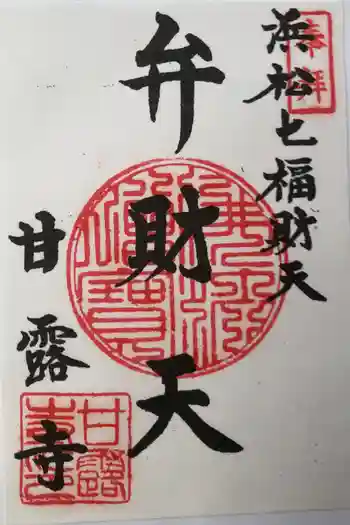 奉拝
浜松七福財天
弁財天
甘露寺
甘露寺